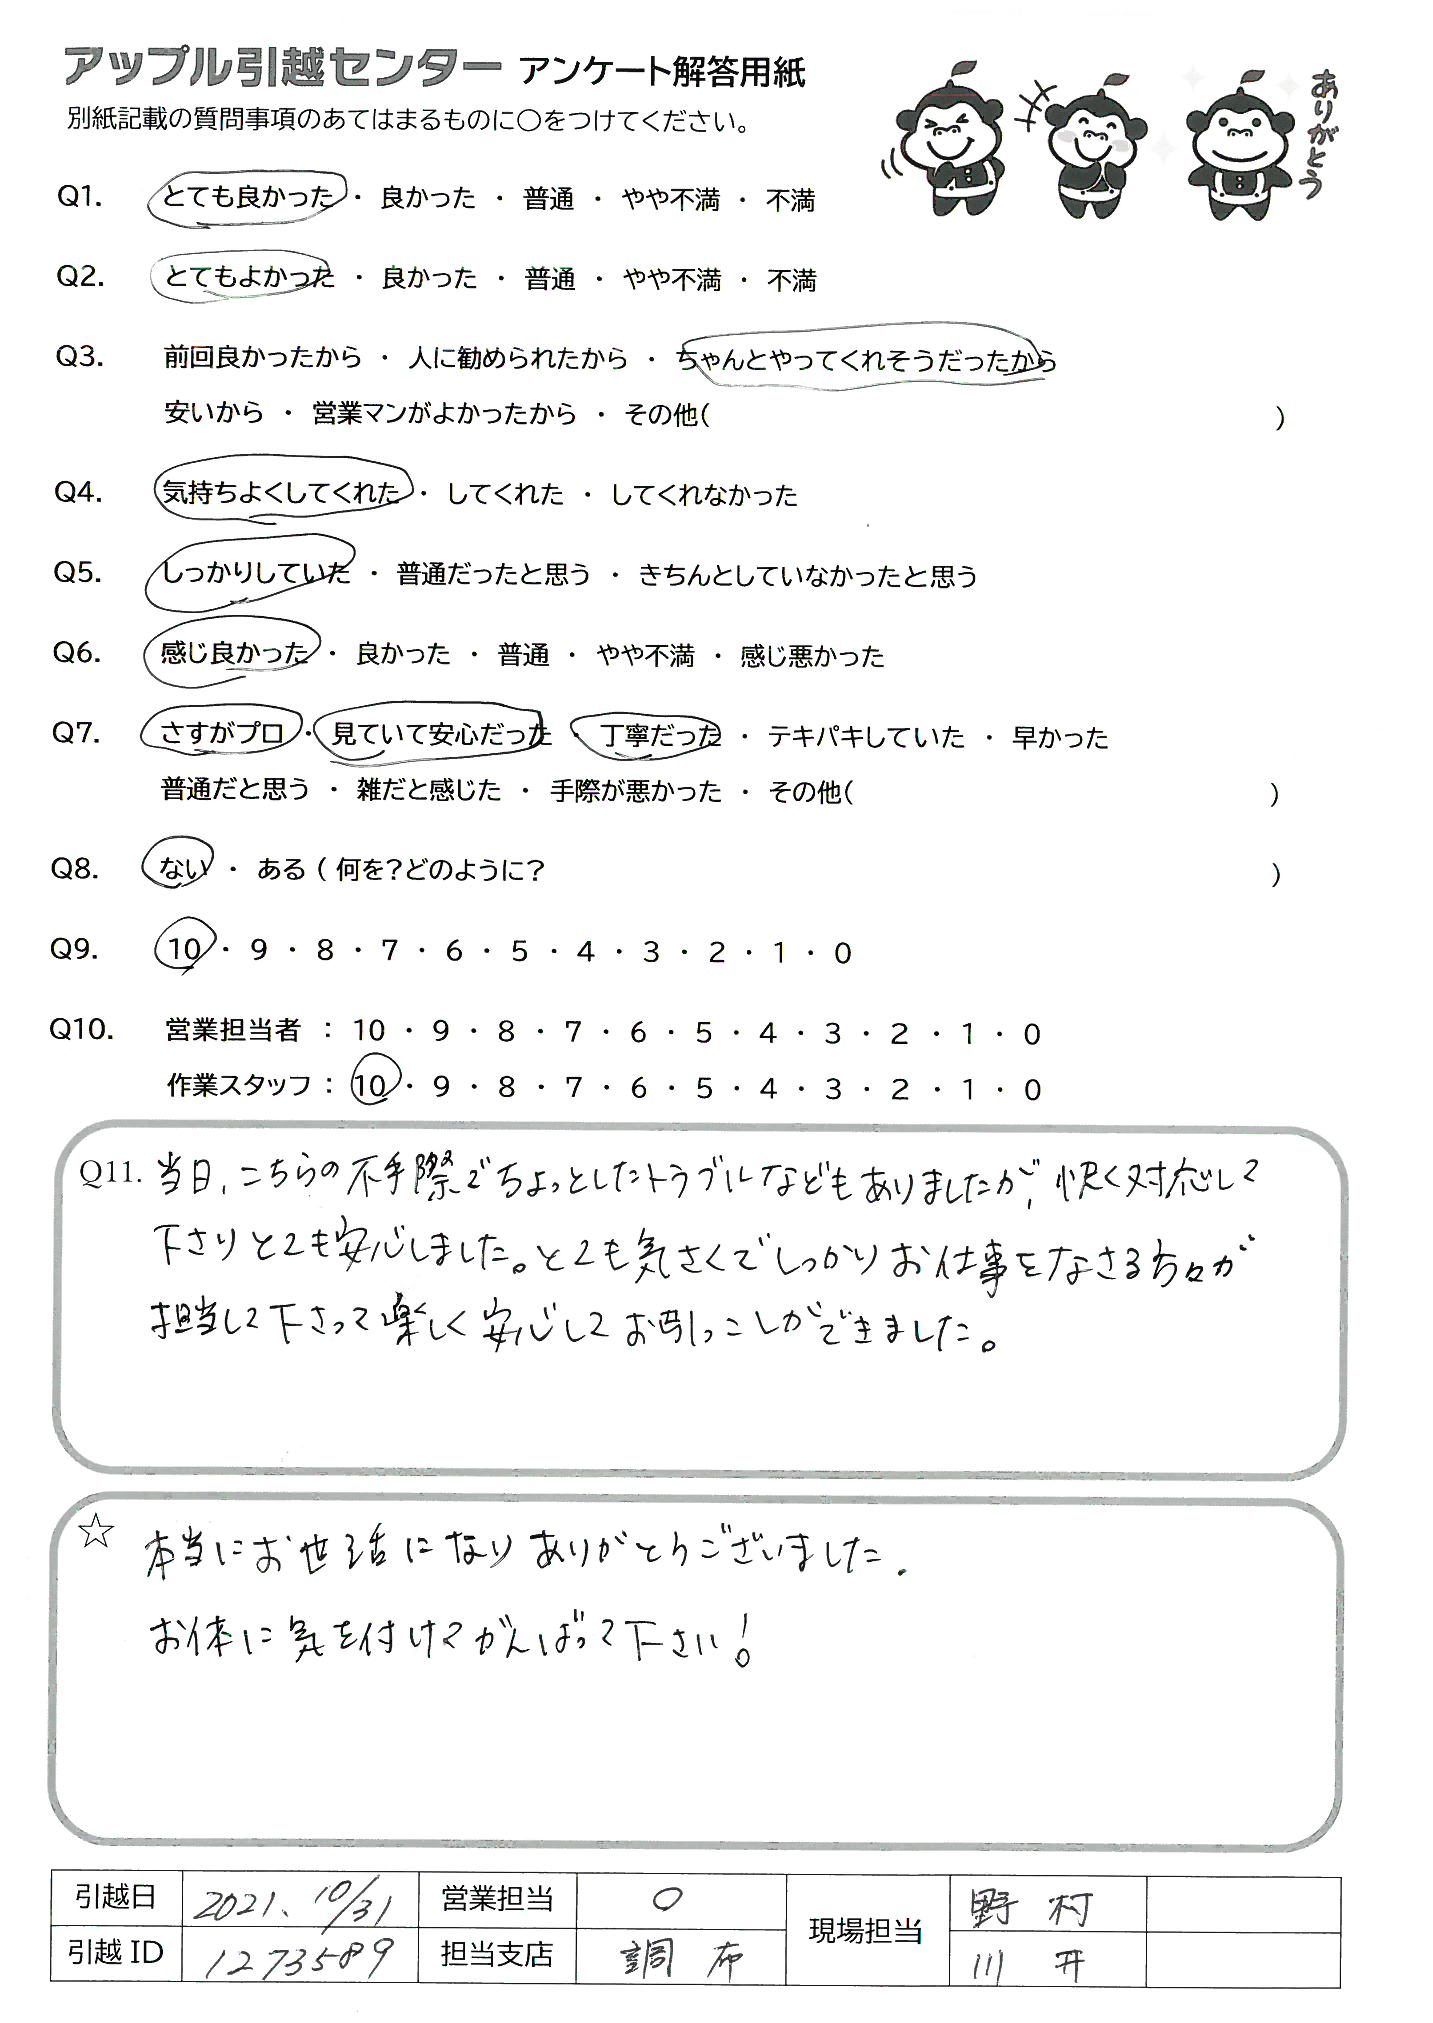 アップル引越センター アンケート解答用紙
別紙記載の質問事項のあてはまるものに○をつけてください。
ありがとう
Q1. とても良かった ・ 良かった ・ 普通 ・ やや不満 ・ 不満
Q2. とてもよかった ・ 良かった ・ 普通 ・ やや不満 ・ 不満
Q3. 前回良かったから ・ 人に勧められたから ・ ちゃんとやってくれそうだったから
安いから ・ 営業マンがよかったから ・ その他( )
Q4. 気持ちよくしてくれた ・ してくれた ・ してくれなかった
Q5. しっかりしていた ・ 普通だったと思う ・ きちんとしていなかったと思う
Q6. 感じ良かった ・ 良かった ・ 普通 ・ やや不満 ・ 感じ悪かった
Q7. さすがプロ ・ 見ていて安心だった ・ 丁寧だった ・ テキパキしていた ・ 早かった
普通だと思う ・ 雑だと感じた ・ 手際が悪かった ・ その他( )
Q8. ない ・ ある ( 何を?どのように? )
Q9. 10 ・ 9 ・ 8 ・ 7 ・ 6 ・ 5 ・ 4 ・ 3 ・ 2 ・ 1 ・ 0
Q10. 営業担当者 : 10 ・ 9 ・ 8 ・ 7 ・ 6 ・ 5 ・ 4 ・ 3 ・ 2 ・ 1 ・ 0
作業スタッフ : 10 ・ 9 ・ 8 ・ 7 ・ 6 ・ 5 ・ 4 ・ 3 ・ 2 ・ 1 ・ 0
Q11. 当日、こちらの不手際でちょっとしたトラブルなどもありましたが、快く対応して
下さりとても安心しました。とても気さくでしっかりお仕事をなさる方々が
担当して下さって楽しく安心してお引っこしができました。
☆ 本当にお世話になりありがとうございました.
お体に気を付けてがんばって下さい!
引越日 2021、10/31 営業担当 ○ 現場担当 野村
引越ID 1273589 担当支店 調布 川井